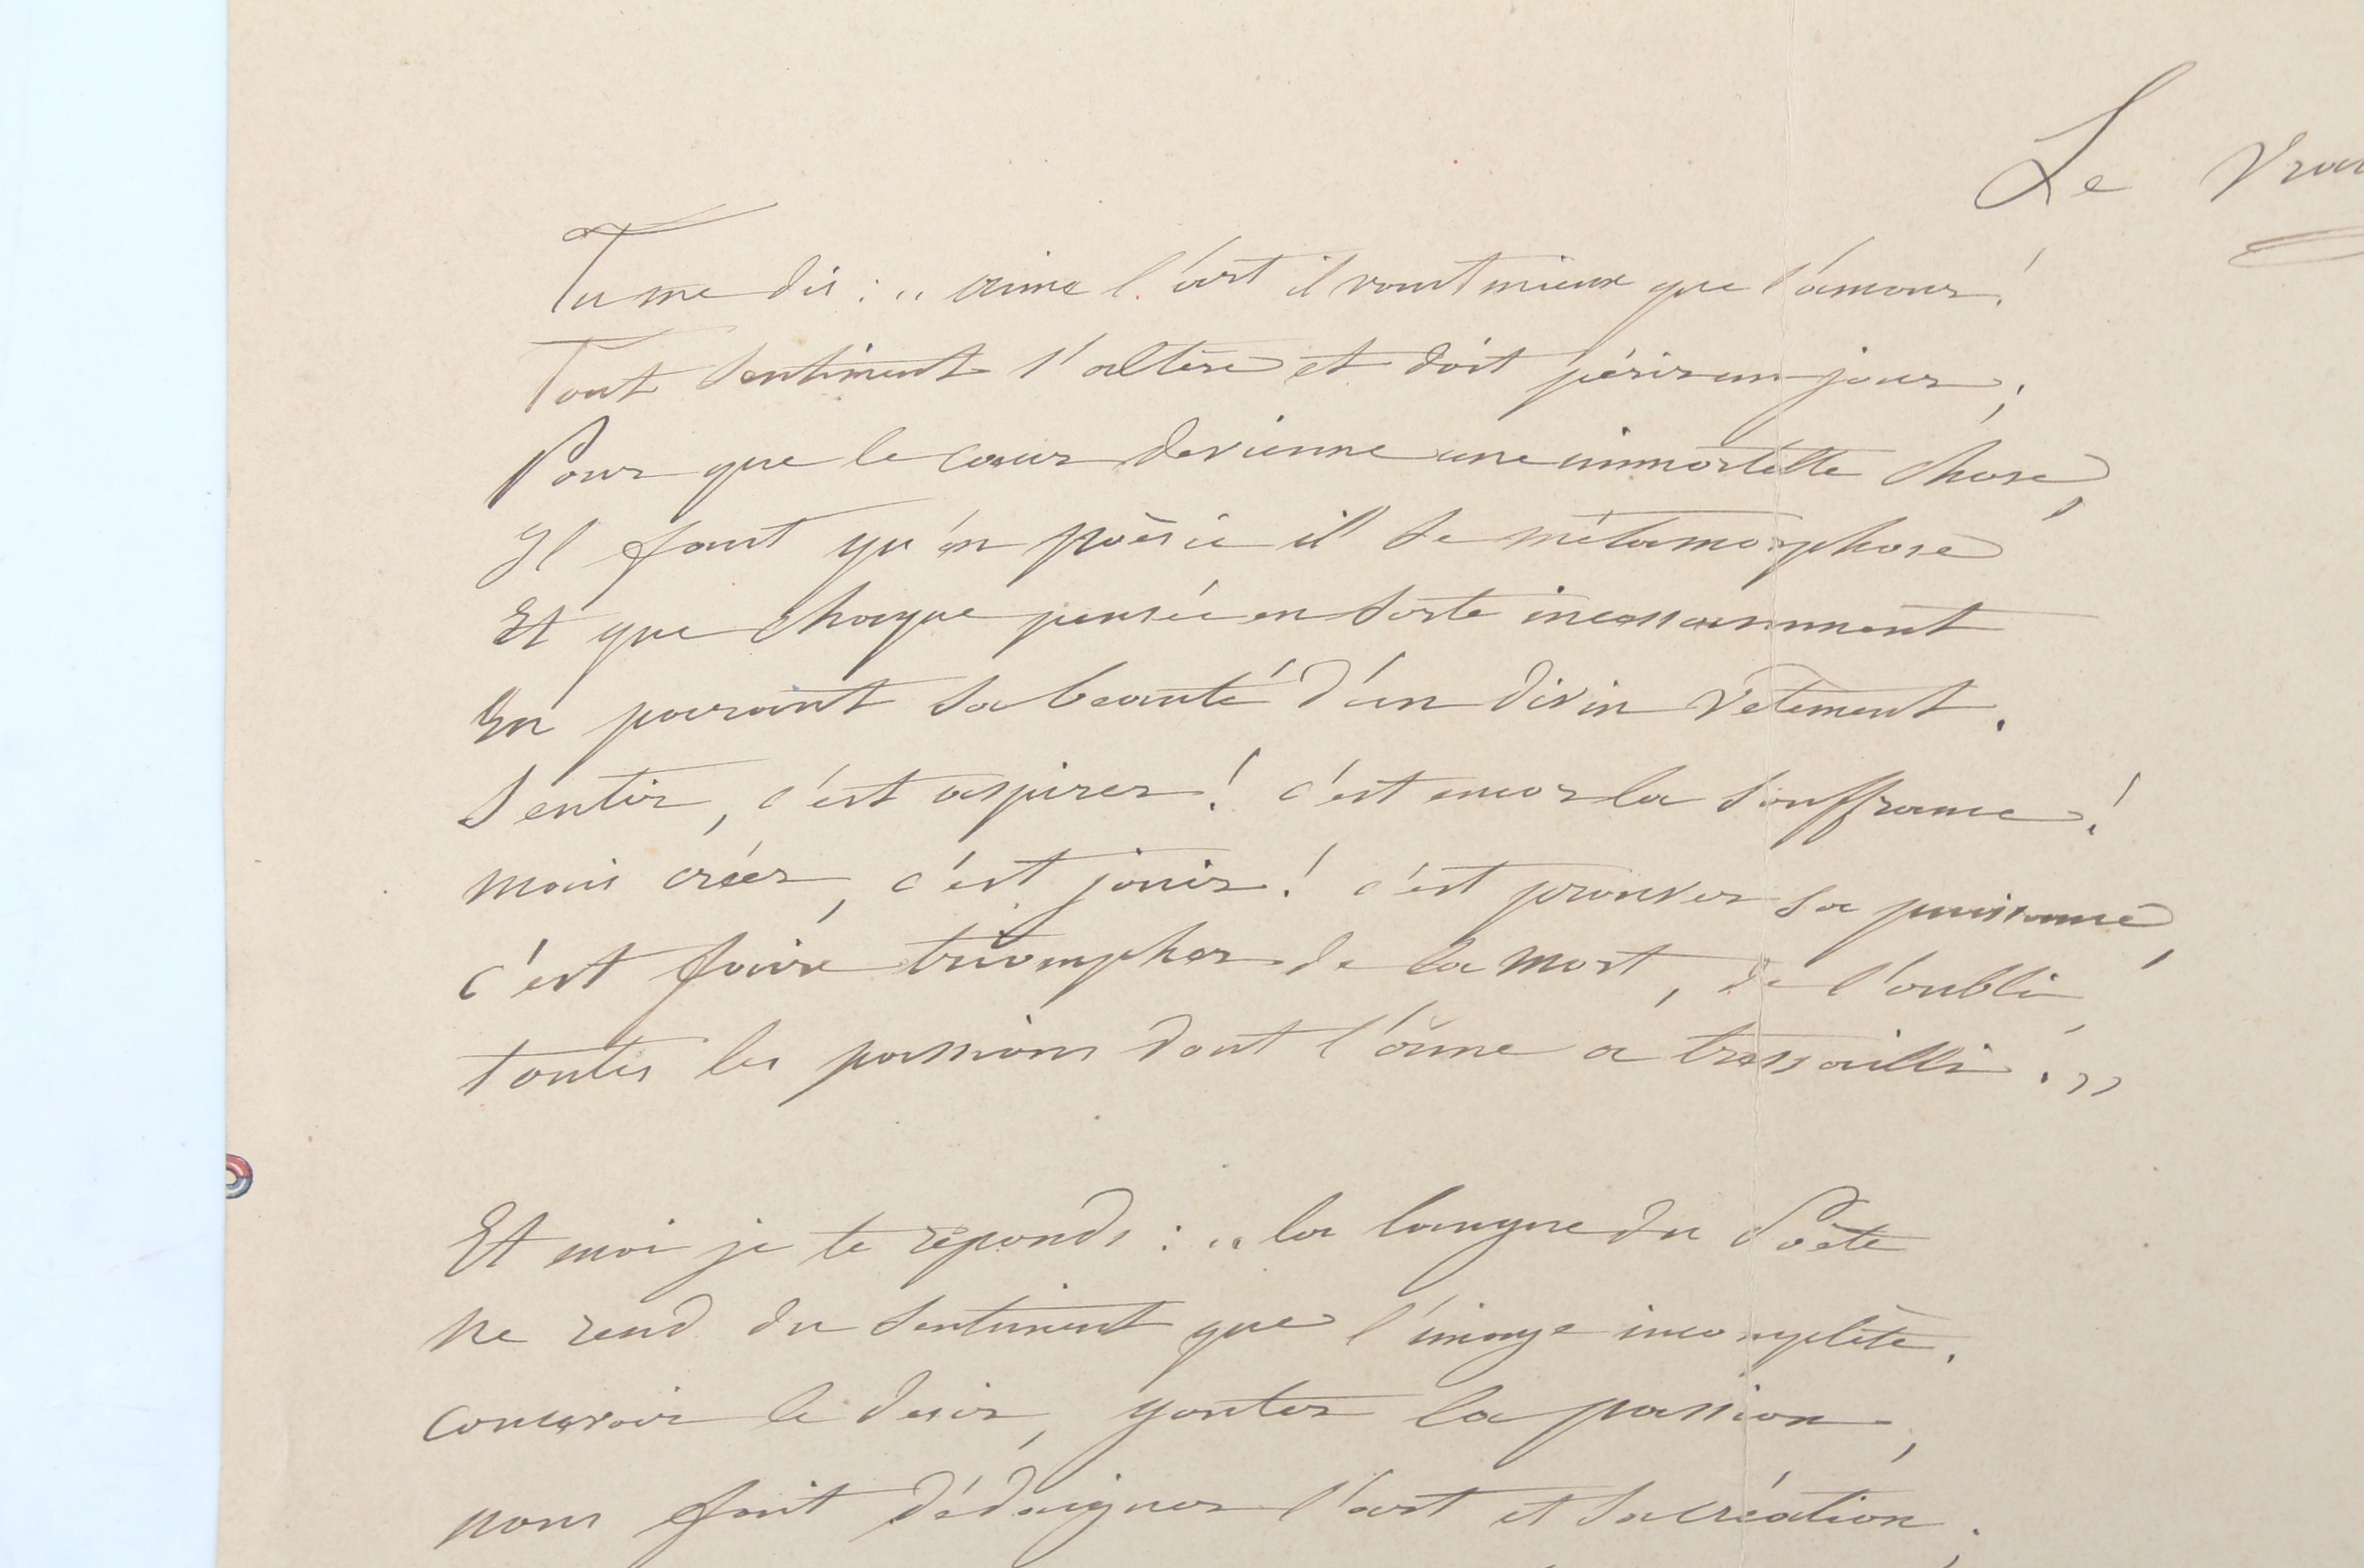 Le Vrai
Tu me dis : „ aime l'art il vaut mieux que l'amour !
Tout sentiment s'altère et doit périr un jour ;
Pour que le cœur devienne une immortelle chose,
Il faut qu'en poësie il se métamorphose
Et que chaque pensée en sorte incessamment
En parant sa beauté d'un divin vêtement.
Sentir, c'est aspirer ! c'est encor la souffrance !
mais créer, c'est jouir ! c'est prouver sa puissance,
c'est faire triompher de la mort, de l'oubli,
toutes les passions dont l'âme a tressailli. »
Et moi je te réponds : „ la langue du Poëte
ne rend du sentiment que l'image incomplète.
concevoir le desir, goûter la passion,
nous fait dédaigner l'art et sa création ;